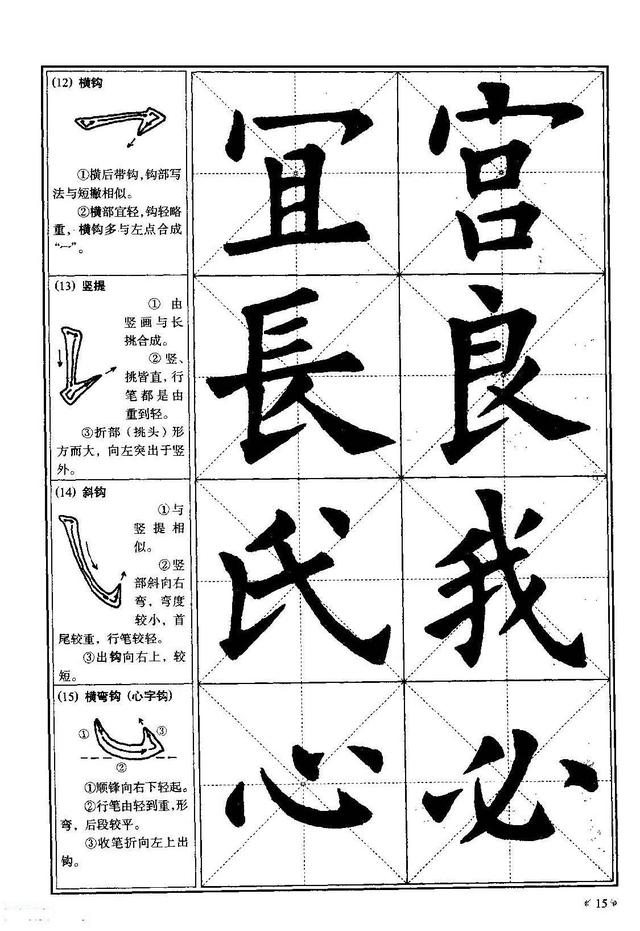 (12) 横钩
①横后带钩,钩部写
法与短撇相似。
②横部宜轻,钩轻略
重,横钩多与左点合成
“一”。
冝 宫
(13) 竖提
① 由
竖画与长
挑合成。
②竖、
挑皆直,行
笔都是由
重到轻。
③折部(挑头)形
方而大,向左突出于竖
外。
長 良
(14) 斜钩
①与
竖提相
似。
②竖
部斜向右
弯,弯度
较小,首
尾较重,行笔较轻。
③出钩向右上,较
短。
氏 我
(15) 横弯钩(心字钩)
① ③
②
①顺锋向右下轻起。
②行笔由轻到重,形
弯,后段较平。
③收笔折向左上出
钩。
心 必
15